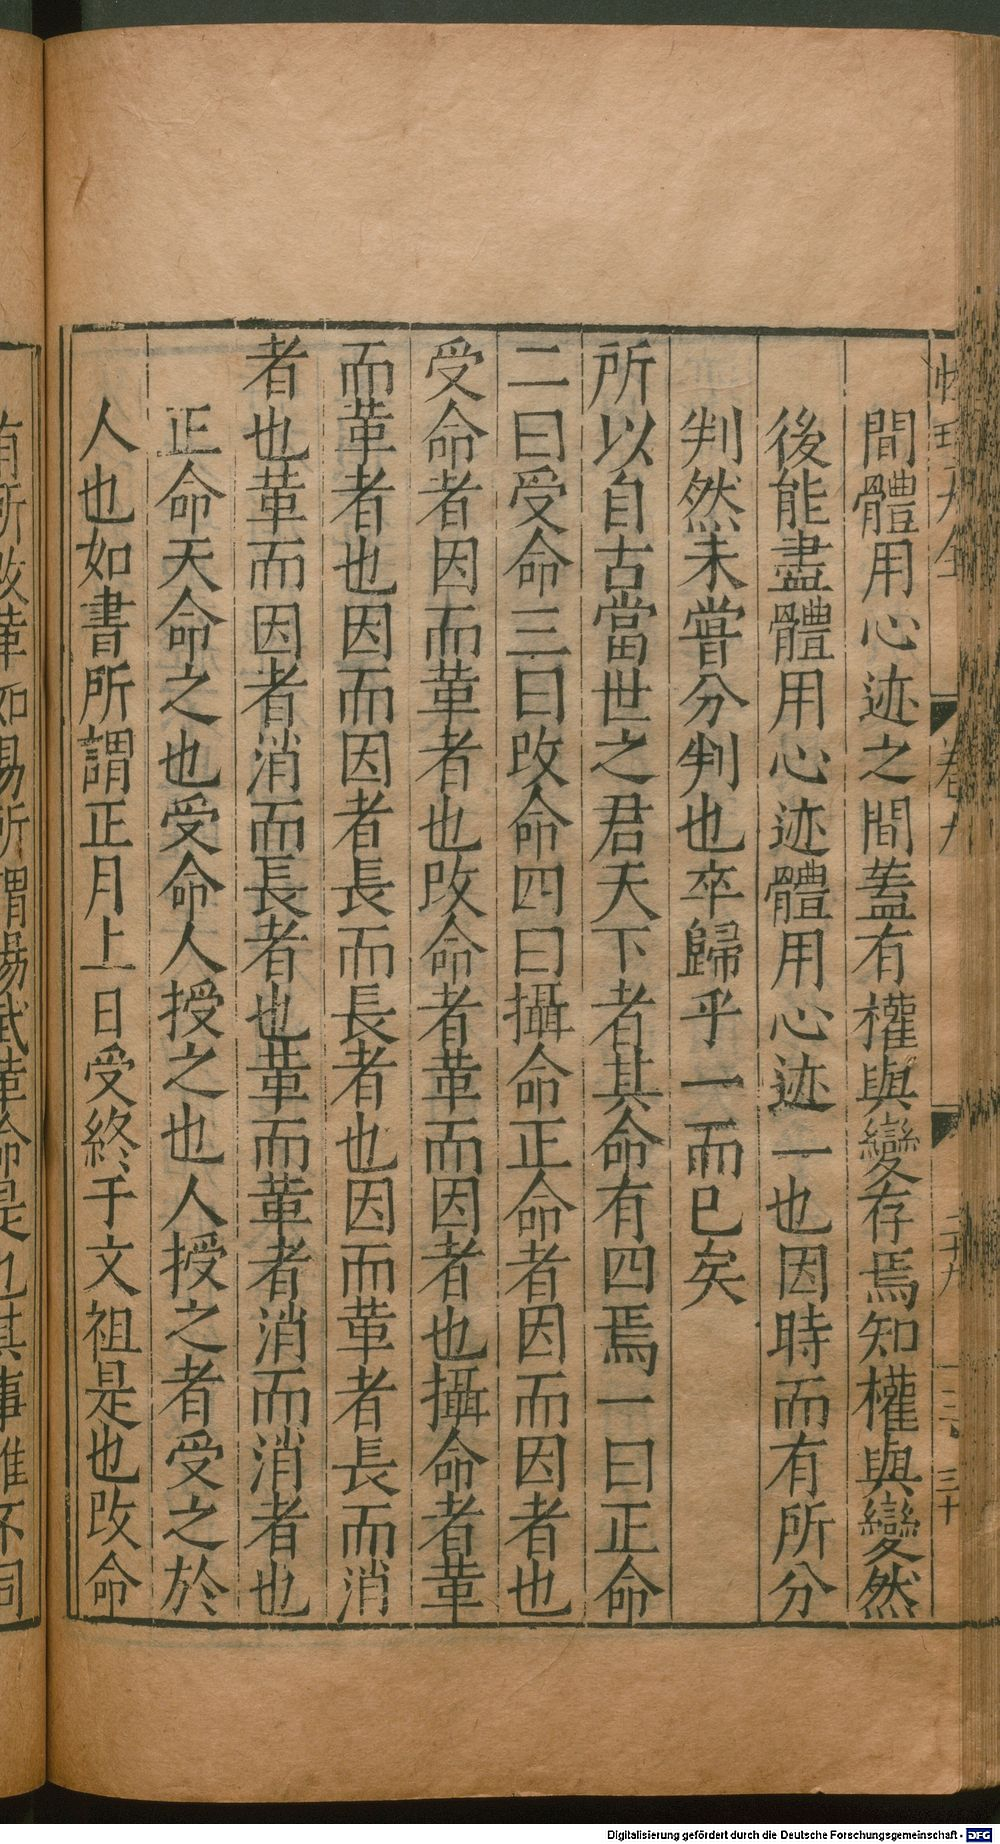 間體用心迹之間蓋有權與變存焉知權與變然
後能盡體用心迹體用心迹一也因時而有所分
判然未甞分判也卒歸乎一而已矣
所以自古當世之君天下者其命有四焉一曰正命
二曰受命三曰改命四曰攝命正命者因而因者也
受命者因而革者也改命者革而因者也攝命者革
而革者也因而因者長而長者也因而革者長而消
者也革而因者消而長者也革而革者消而消者也
正命天命之也受命人授之也人授之者受之於
人也如書所謂正月上日受終于文祖是也改命
有所改革如易所謂湯武革命是也其事雖不同
卷九
二十九
三十
Digitalisierung gefördert durch die Deutsche Forschungsgemeinschaft - DFG